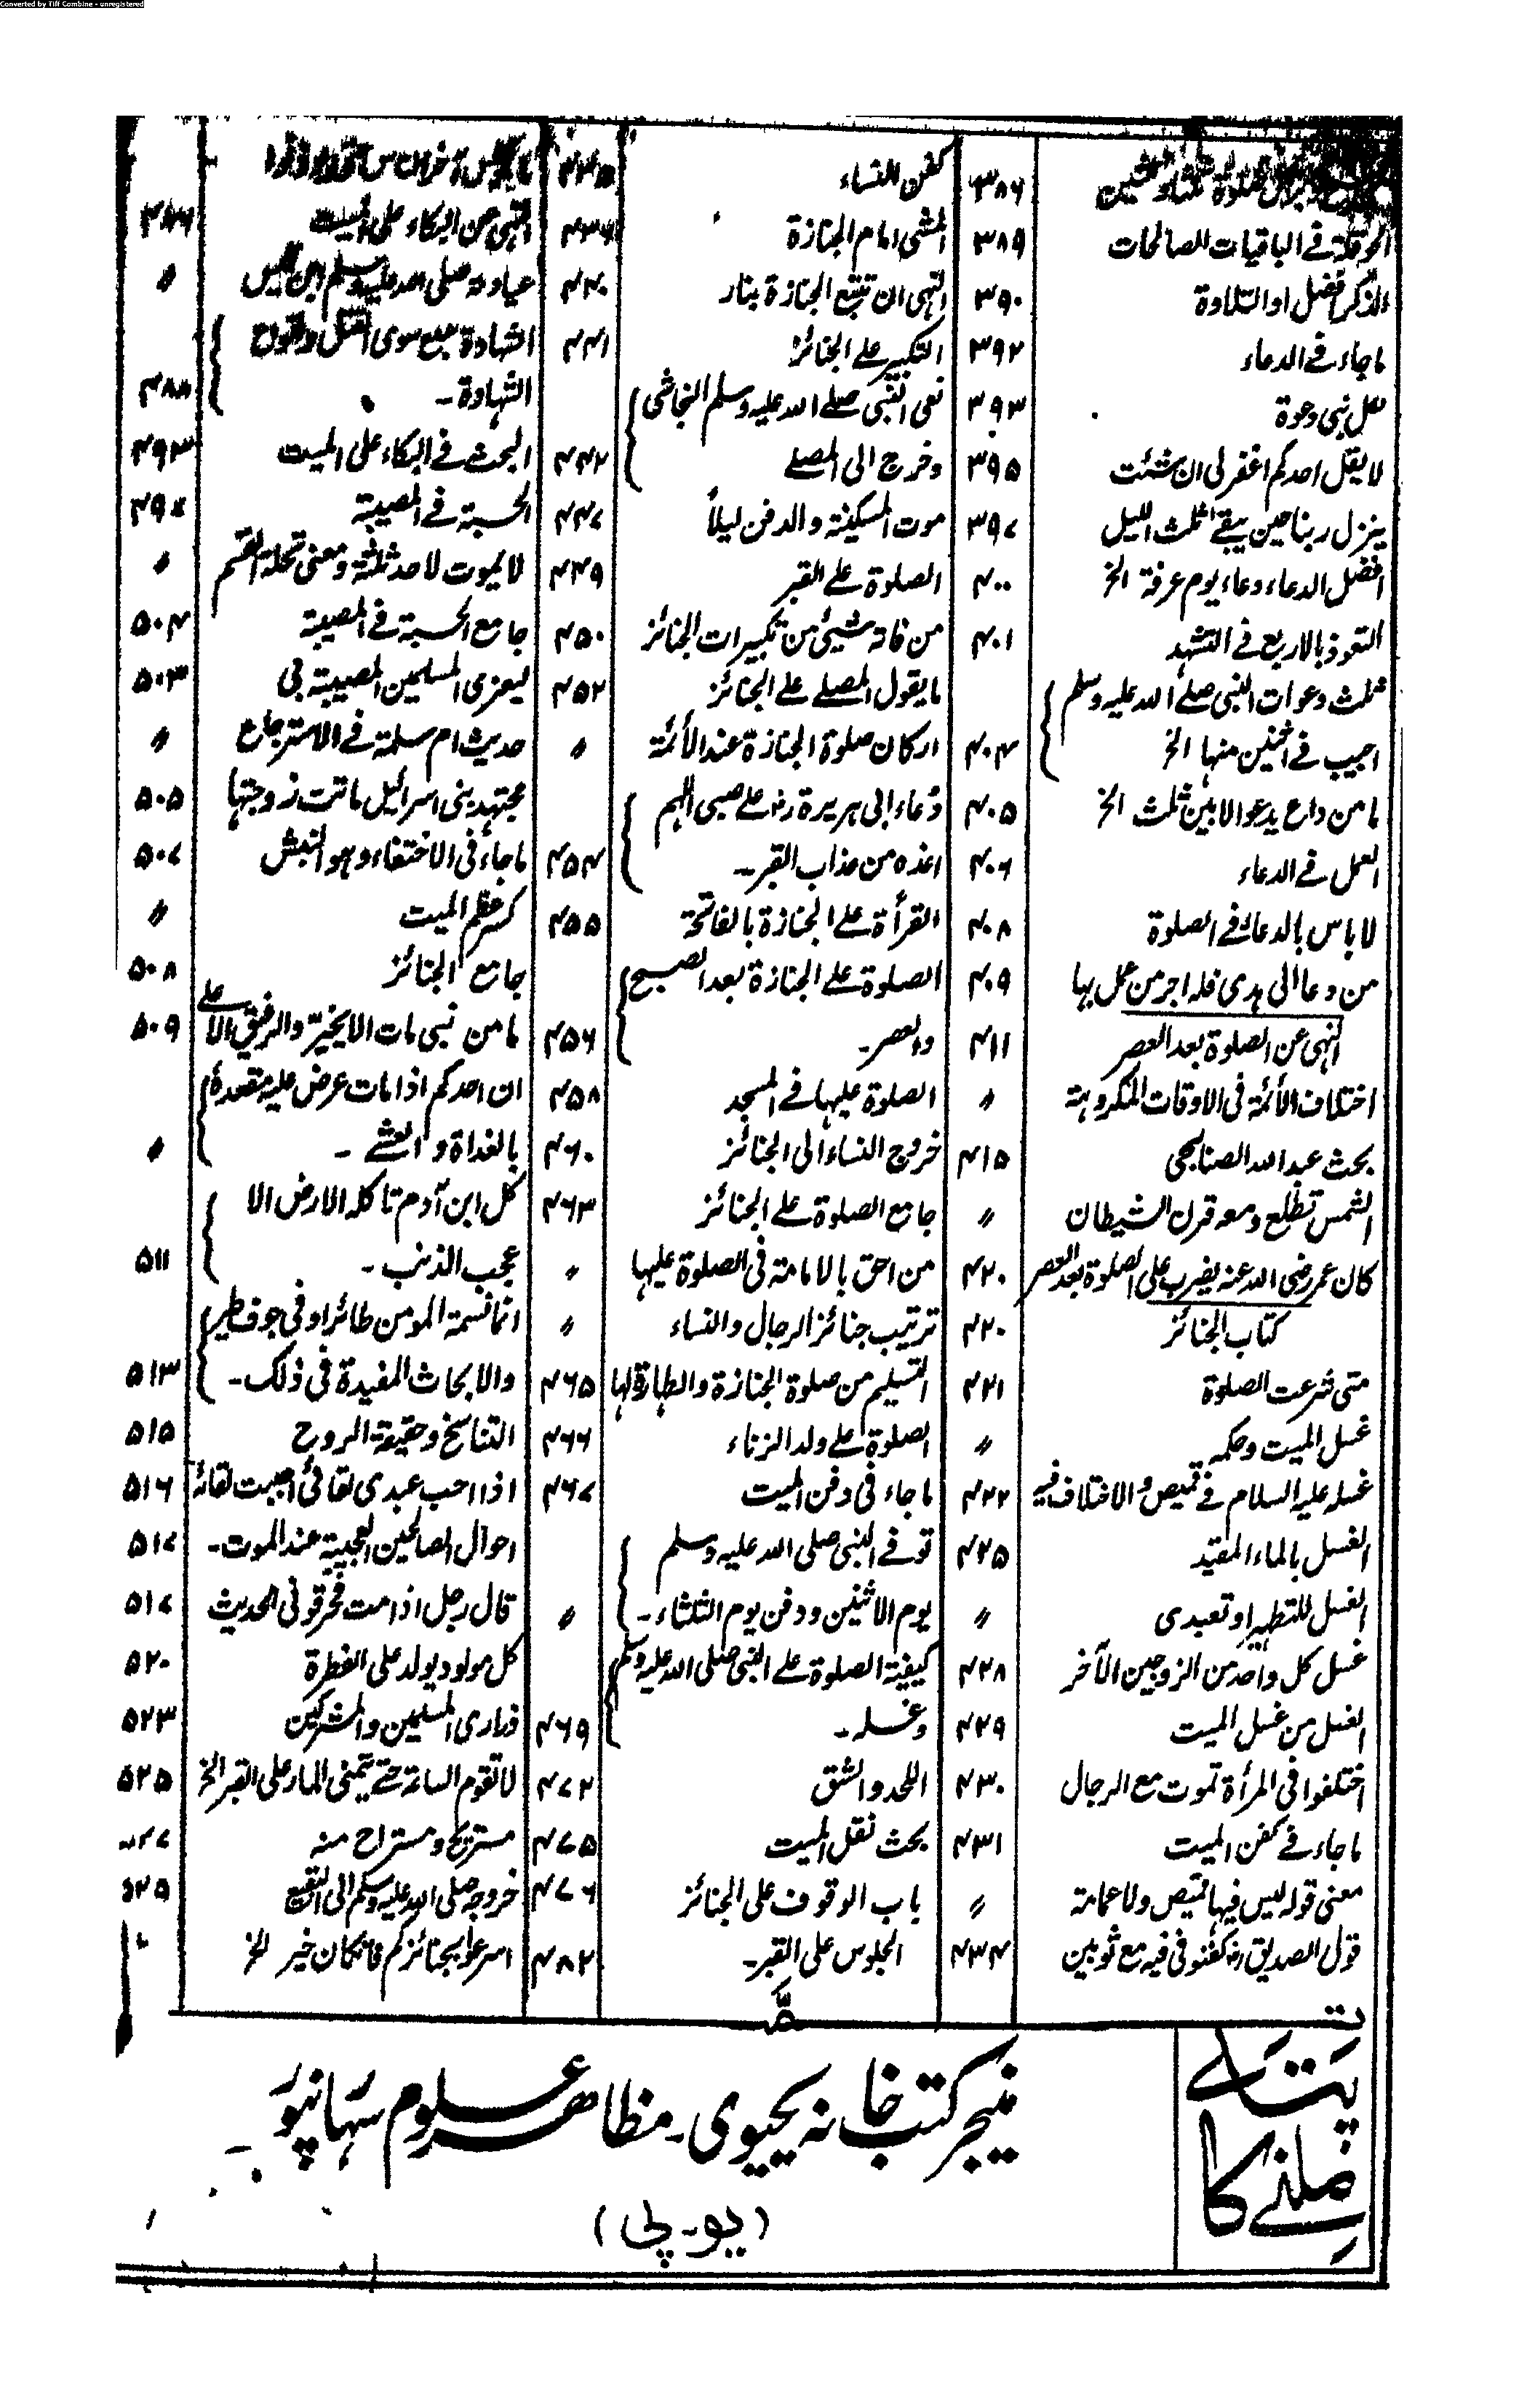 Converted by Tiff Combine - unregistered
صلوة ۳۸۶
الحوقلة في الباقيات الصالحات ۳۸۹
الذكر افضل او التلاوة ۳۹۰
ما جاء في الدعاء ۳۹۲
لكل نبى دعوة ۳۹۳
لا يقل احدكم اغفر لى ان شئت ۳۹۵
ينزل ربنا حين يبقے ثلث الليل ۳۹۷
افضل الدعاء دعاء يوم عرفة الخ ۴۰۰
التعوذ بالاربع في التشهد ۴۰۱
ثلث دعوات النبى صلے الله عليه وسلم
اجيب في اثنين منها الخ ۴۰۴
ما من داع يدعو الا بين ثلث الخ ۴۰۵
العمل في الدعاء ۴۰۶
لا باس بالدعاء في الصلوة ۴۰۸
من دعا الى هدى فله اجر من عمل بها ۴۰۹
النهى عن الصلوة بعد العصر ۴۱۱
اختلاف الأئمة فى الاوقات المكروهة 〃
بحث عبد الله الصنابحى ۴۱۵
الشمس تطلع ومعه قرن الشيطان 〃
كان عمر رضى الله عنه يضرب على الصلوة بعد العصر ۴۲۰
كتاب الجنائز ۴۲۰
متى شرعت الصلوة ۴۲۱
غسل الميت وحكمه 〃
غسله عليه السلام في قميص والاختلاف فيه ۴۲۲
الغسل بالماء المقيد ۴۲۵
الغسل للتطهير او تعبدى 〃
غسل كل واحد من الزوجين الآخر ۴۲۸
الغسل من غسل الميت ۴۲۹
اختلفوا فى المرأة تموت مع الرجال ۴۳۰
ما جاء في كفن الميت ۴۳۱
معنى قوله ليس فيها قميص ولا عمامة 〃
قول الصديق رضـ كفنونى فيه مع ثوبين ۴۳۴
كفن النساء ۴۳۵
المشى امام الجنازة ۴۳۶
النهى ان تتبع الجنازة بنار ۴۴۰
التكبير على الجنائز ۴۴۱
نعى النبى صلے الله عليه وسلم النجاشى
وخرج الى المصلے ۴۴۲
موت المسكينة والدفن ليلاً ۴۴۷
الصلوة على القبر ۴۴۹
من فاته شىئ من تكبيرات الجنائز ۴۵۰
ما يقول المصلے على الجنائز ۴۵۲
اركان صلوة الجنازة عند الأئمة 〃
دعاء ابى هريرة رضـ على صبى اللهم
اعذه من عذاب القبر۔ ۴۵۴
القرأة على الجنازة بالفاتحة ۴۵۵
الصلوة على الجنازة بعد الصبح
والعصر۔ ۴۵۶
الصلوة عليها في المسجد ۴۵۸
خروج النساء الى الجنائز ۴۶۰
جامع الصلوة على الجنائز ۴۶۳
من احق بالامامة فى الصلوة عليها 〃
ترتيب جنائز الرجال والنساء 〃
التسليم من صلوة الجنازة والطهارة لها ۴۶۵
الصلوة على ولد الزناء ۴۶۶
ما جاء فى دفن الميت ۴۶۷
توفے النبى صلى الله عليه وسلم
يوم الاثنين ودفن يوم الثلثاء۔ 〃
كيفية الصلوة على النبى صلى الله عليه وسلم
وغسله۔ ۴۶۹
اللحد والشق ۴۷۲
بحث نقل الميت ۴۷۵
باب الوقوف على الجنائز ۴۷۶
الجلوس على القبر۔ ۴۸۲
النهى عن البكاء على الميت ۴۸۶
عيادته صلى الله عليه وسلم 〃
الشهادة سبع سوى القتل
الشهادة۔ ۴۸۸
البحث في البكاء على الميت ۴۹۳
الحسبة في المصيبة
لا يموت لاحد ثلثة ومعنى تحلة القسم 〃
جامع الحسبة في المصيبة ۵۰۴
ليعزى المسلمين المصيبة بى ۵۰۳
حديث ام سلمة في الاسترجاع 〃
مجتهد بنى اسرائيل ماتت زوجتها ۵۰۵
ما جاء فى الاختفاء وهو النبش ۵۰۷
كسر عظم الميت 〃
جامع الجنائز ۵۰۸
ما من نبى مات الا يخيّر والرفيق الاعلى ۵۰۹
ان احدكم اذا مات عرض عليه مقعده
بالغداة والعشے۔ 〃
كل ابن آدم تاكله الارض الا
عجب الذنب۔ ۵۱۱
انما نسمة المومن طائر او فى جوف طير
والابحاث المفيدة فى ذلك۔ ۵۱۳
التناسخ وحقيقة الروح ۵۱۵
اذا احب عبدى لقائى احببت لقائه ۵۱۶
احوال الصالحين العجيبة عند الموت۔ ۵۱۷
قال رجل اذا مت فحرقونى الحديث ۵۱۷
كل مولود يولد على الفطرة ۵۲۰
ذرارى المسلمين والمشركين ۵۲۳
لا تقوم الساعة حتے يتمنى المار على القبر الخ ۵۲۵
مستريح ومستراح منه
خروجه صلى الله عليه وسلم الى البقيع
اسرعوا بجنائزكم فانما خير الخ
پتہ
ملنے کا
منیجر کتب خانہ یحیوی۔ مظاهر علوم سہانپور
(یو۔پی)